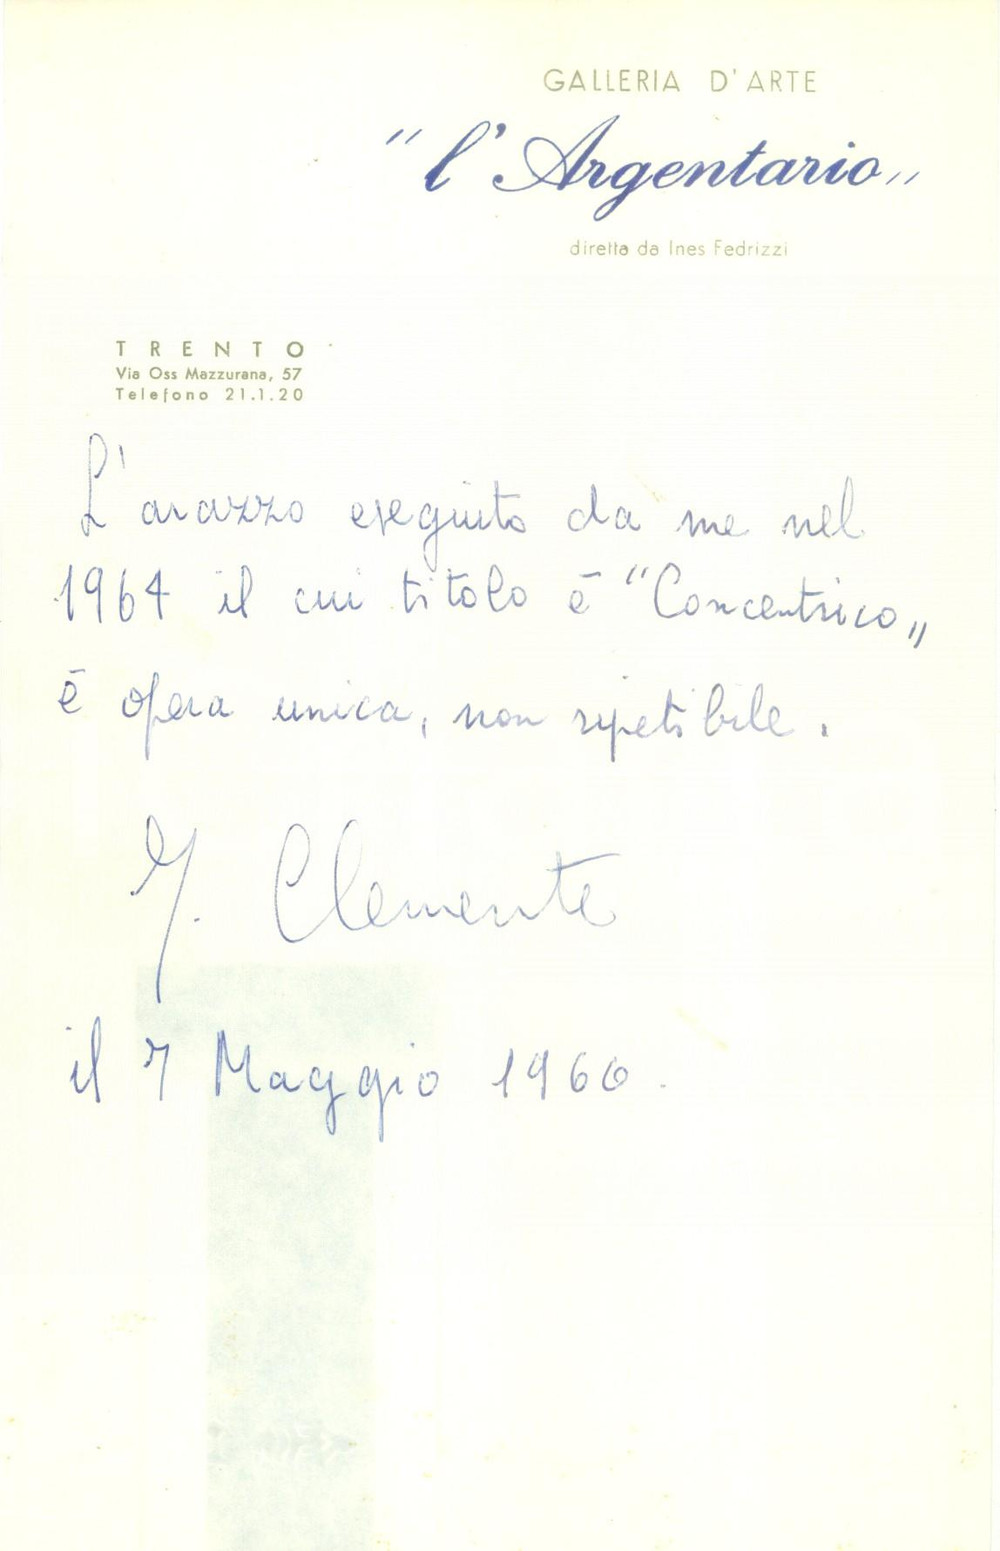 GALLERIA D'ARTE
"l'Argentario"
diretta da Ines Fedrizzi
TRENTO
Via Oss Mazzurana, 57
Telefono 21.1.20
L'arazzo eseguito da me nel
1964 il cui titolo è "Concentrico"
è opera unica, non ripetibile.
Y. Clemente
il 7 Maggio 1966.